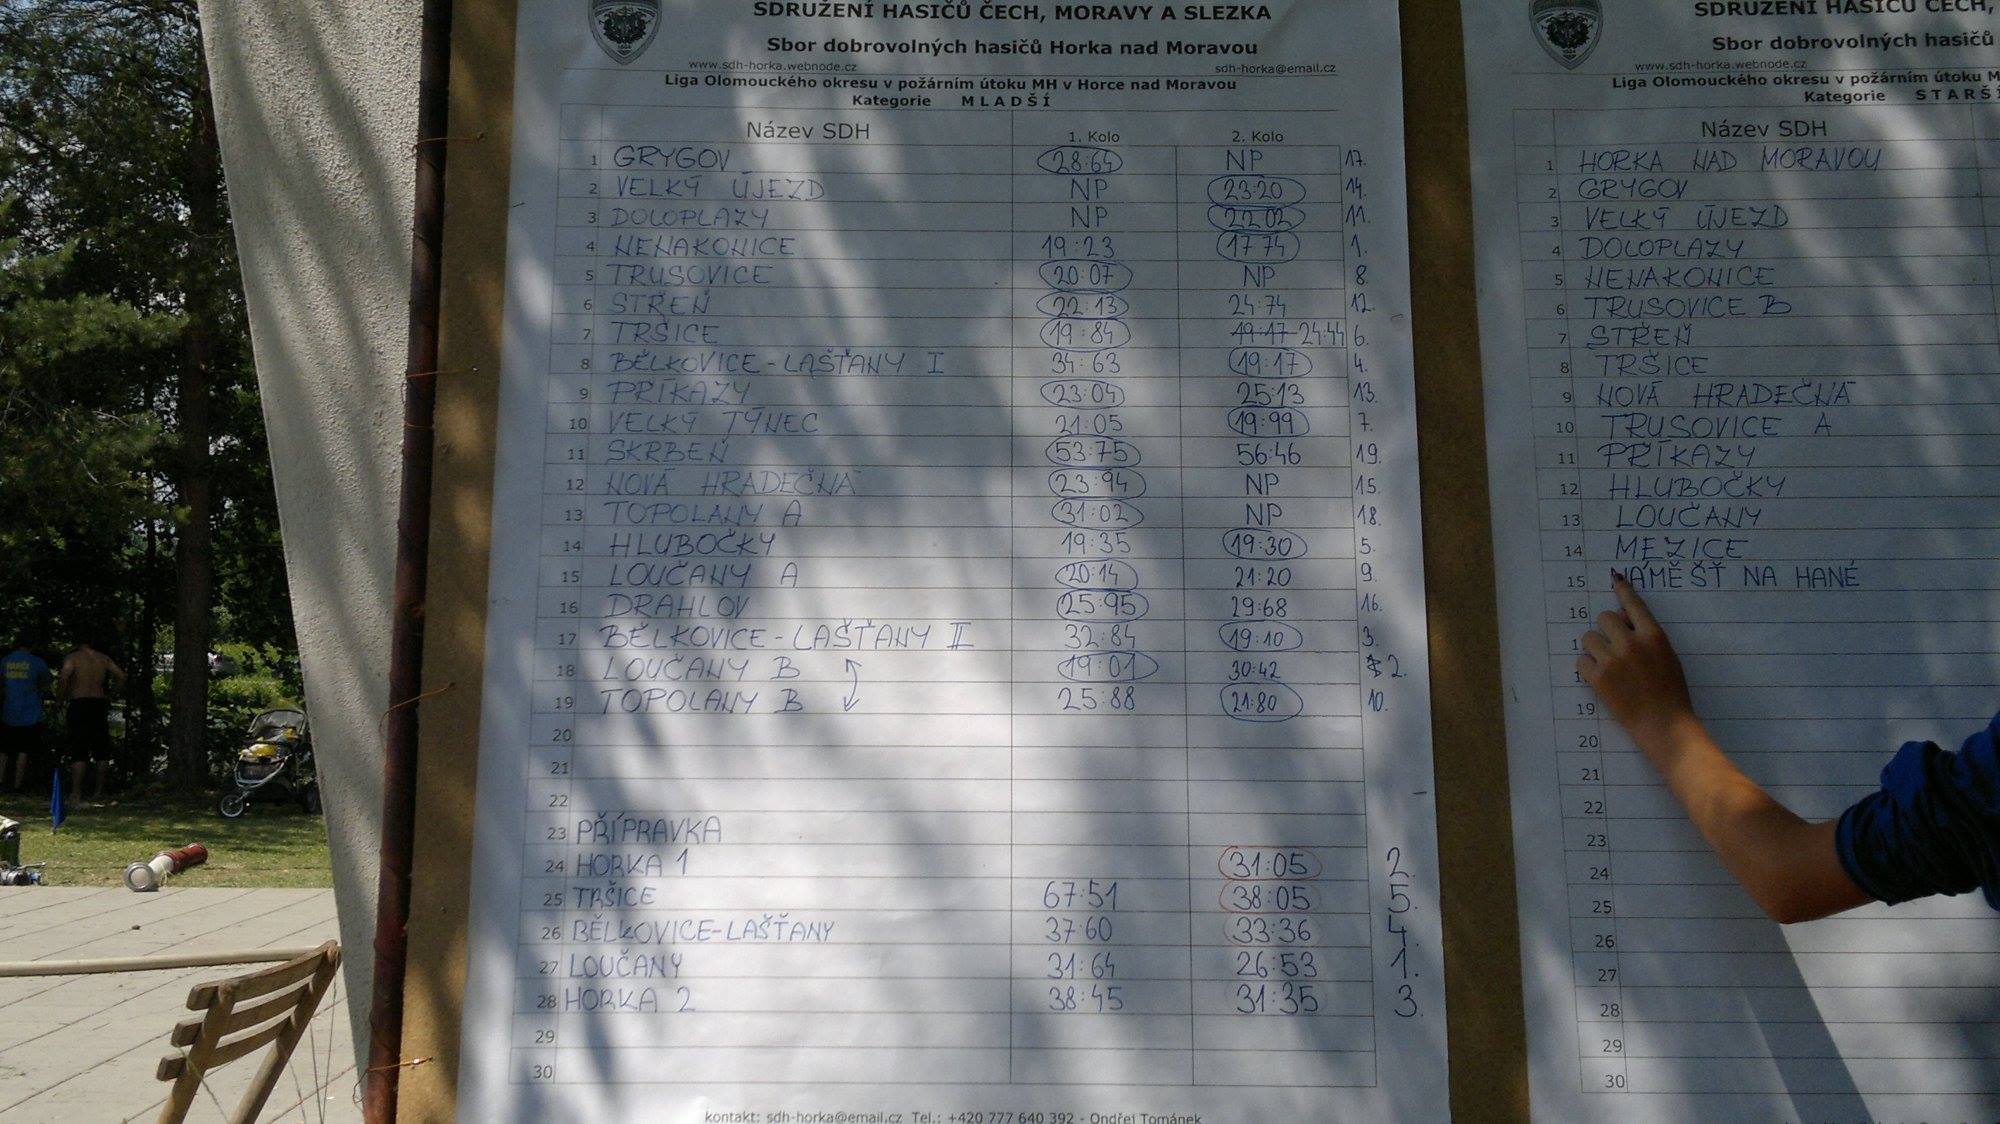 SDRUŽENÍ HASIČŮ ČECH, MORAVY A SLEZKA
Sbor dobrovolných hasičů Horka nad Moravou
www.sdh-horka.webnode.cz sdh-horka@email.cz
Liga Olomouckého okresu v požárním útoku MH v Horce nad Moravou
Kategorie MLADŠÍ
Název SDH 1. Kolo 2. Kolo
1 GRYGOV 28:64 NP 17.
2 VELKÝ ÚJEZD NP 23:20 14.
3 DOLOPLAZY NP 22 02 11.
4 NENAKONICE 19:23 17 74 1.
5 TRUSOVICE 20:07 NP 8.
6 STŘEŇ 22:13 24:74 12.
7 TRŠICE 19:84 19:17 24:44 6.
8 BĚLKOVICE-LAŠŤANY I 34:63 19:17 4.
9 PŘÍKAZY 23:04 25:13 13.
10 VELKÝ TÝNEC 21:05 19:99 7.
11 SKRBEŇ 53:75 56:46 19.
12 NOVÁ HRADEČNÁ 23:94 NP 15.
13 TOPOLANY A 31:02 NP 18.
14 HLUBOČKY 19:35 19:30 5.
15 LOUČANY A 20:14 21:20 9.
16 DRAHLOV 25:95 29:68 16.
17 BĚLKOVICE-LAŠŤANY II 32:84 19:10 3.
18 LOUČANY B 19:01 30:42 2.
19 TOPOLANY B 25:88 21:80 10.
20
21
22
23 PŘÍPRAVKA
24 HORKA 1 31:05 2.
25 TRŠICE 67:51 38:05 5.
26 BĚLKOVICE-LAŠŤANY 37:60 33:36 4.
27 LOUČANY 31:64 26:53 1.
28 HORKA 2 38:45 31:35 3.
29
30
kontakt: sdh-horka@email.cz Tel.: +420 777 640 392 - Ondřej Tománek
SDRUŽENÍ HASIČŮ ČECH,
Sbor dobrovolných hasičů
www.sdh-horka.webnode.cz
Liga Olomouckého okresu v požárním útoku M
Kategorie STARŠÍ
Název SDH
1 HORKA NAD MORAVOU
2 GRYGOV
3 VELKÝ ÚJEZD
4 DOLOPLAZY
5 NENAKONICE
6 TRUSOVICE B
7 STŘEŇ
8 TRŠICE
9 NOVÁ HRADEČNÁ
10 TRUSOVICE A
11 PŘÍKAZY
12 HLUBOČKY
13 LOUČANY
14 MEZICE
15 NÁMĚŠŤ NA HANÉ
16
19
20
21
22
23
24
25
26
27
28
29
30